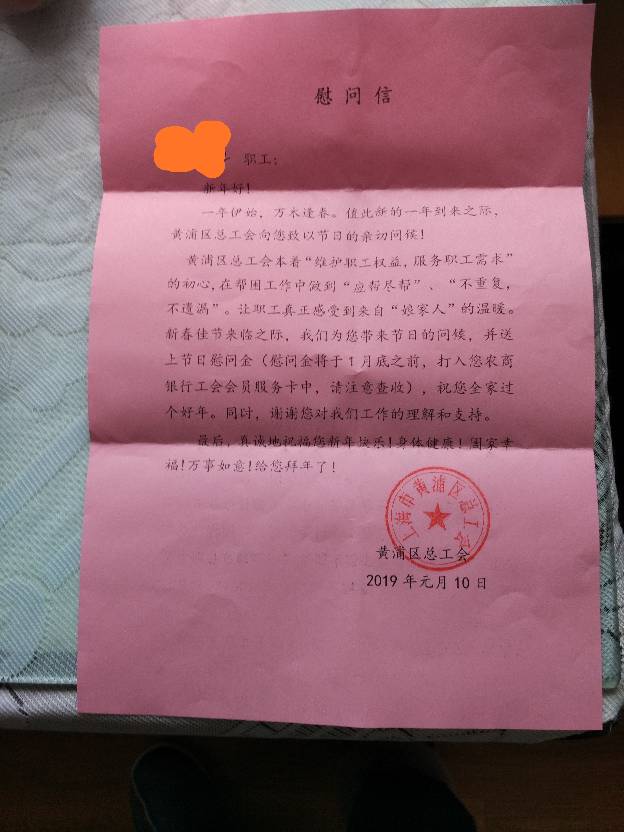 慰问信
职工：
新年好！
一年伊始，万木逢春。值此新的一年到来之际，
黄浦区总工会向您致以节日的亲切问候！
黄浦区总工会本着“维护职工权益，服务职工需求”
的初心，在帮困工作中做到“应帮尽帮”、“不重复，
不遗漏”。让职工真正感受到来自“娘家人”的温暖。
新春佳节来临之际，我们为您带来节日的问候，并送
上节日慰问金（慰问金将于1月底之前，打入您农商
银行工会会员服务卡中，请注意查收），祝您全家过
个好年。同时，谢谢您对我们工作的理解和支持。
最后，真诚地祝福您新年快乐！身体健康！阖家幸
福！万事如意！给您拜年了！
上海市黄浦区总工会
黄浦区总工会
2019年元月10日